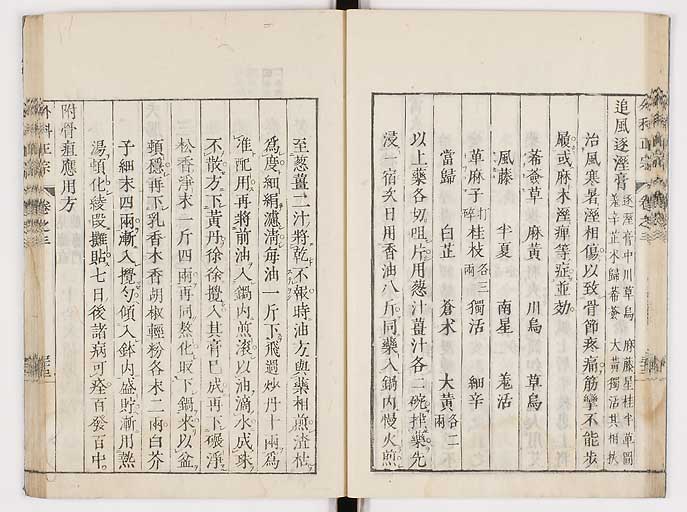 追風逐溼膏 逐溼膏中川草烏 麻藤星桂半草圖
羌辛芷术歸菴蔘 大黃獨活其相扶
治風寒暑溼相傷以致骨節疼痛筋攣不能步
履或麻木溼痺等症並効
蔘草 麻黃 川烏 草烏
風藤 半夏 南星 羗活
蓖麻子 打碎 桂枝 各三兩 獨活 細辛
當歸 白芷 蒼术 大黃 各二兩
以上藥各切咀片用葱汁薑汁各二碗拌藥先
浸一宿次日用香油八斤同藥入鍋內慢火煎
至葱薑二汁將乾不報時油方與藥相煎渣枯
爲度細絹濾淸每油一斤下飛過炒丹十兩爲
准配用再將前油入鍋內煎滾以油滴水成珠
不散方下黃丹徐徐攪入其膏已成再下碾淨
松香淨末一斤四兩再同熬化取下鍋來以盆
頓穩再下乳香木香胡椒輕粉各末二兩白芥
子細末四兩漸入攪勻傾入鉢內盛貯漸用熱
湯頓化綾段攤貼七日後諸病可痊百發百中
附骨疽應用方
外科正宗 卷之三